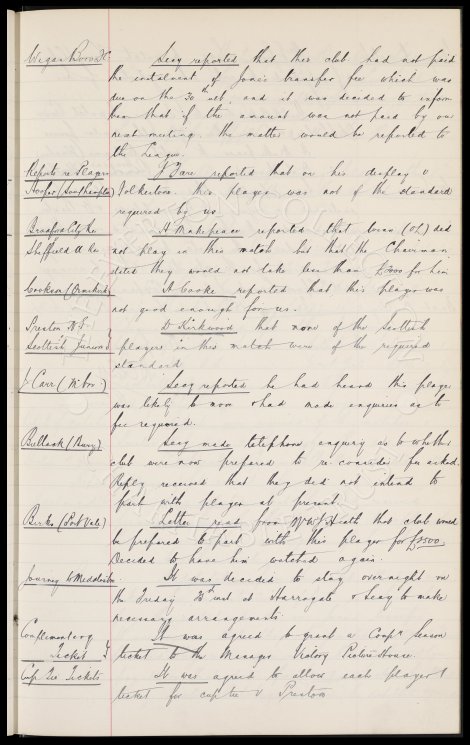 Wigan Boro' Secy reported that this club had not paid
the instalment of Jones transfer fee which was
due on the 20th ult, and it was decided to inform
them that if the amount was not paid by our
next meeting the matter would be reported to
the League.
Reports re Players J Fare reported that on his display v
Hooper (Southampton) Folkestone this player was not of the standard
required by us
Bradford City Res H Makepeace reported that (OL) did
Sheffield U Res not play in this match but that the Chairman
stated they would not take less than £3000 for him
Cookson (Ormskirk) A Cooke reported that this player was
not good enough for us.
Preston N.E. D Kirkwood that none of the Scottish
Scottish Juniors players in this match were of the required
standard
J. Carr (M'bro') Secy reported he had heard this player
was likely to move & had made enquiries as to
fee required.
Bullock (Bury) Secy made telephone enquiry as to whether
club were now prepared to re-consider fee asked.
Reply received that they did not intend to
part with player at present.
(Port Vale) Letter read from Mr W T Heath that club would
be prepared to part with this player for £3500
Decided to have him watched again.
Journey to Middlesbro It was decided to stay overnight on
the Friday at Harrogate & Secy to make
necessary arrangements.
Complementary It was agreed to grant a Season
Ticket ticket to the Manager Victory Picture House.
Cup Tie Tickets It was agreed to allow each player 1
ticket for cup tie v Preston